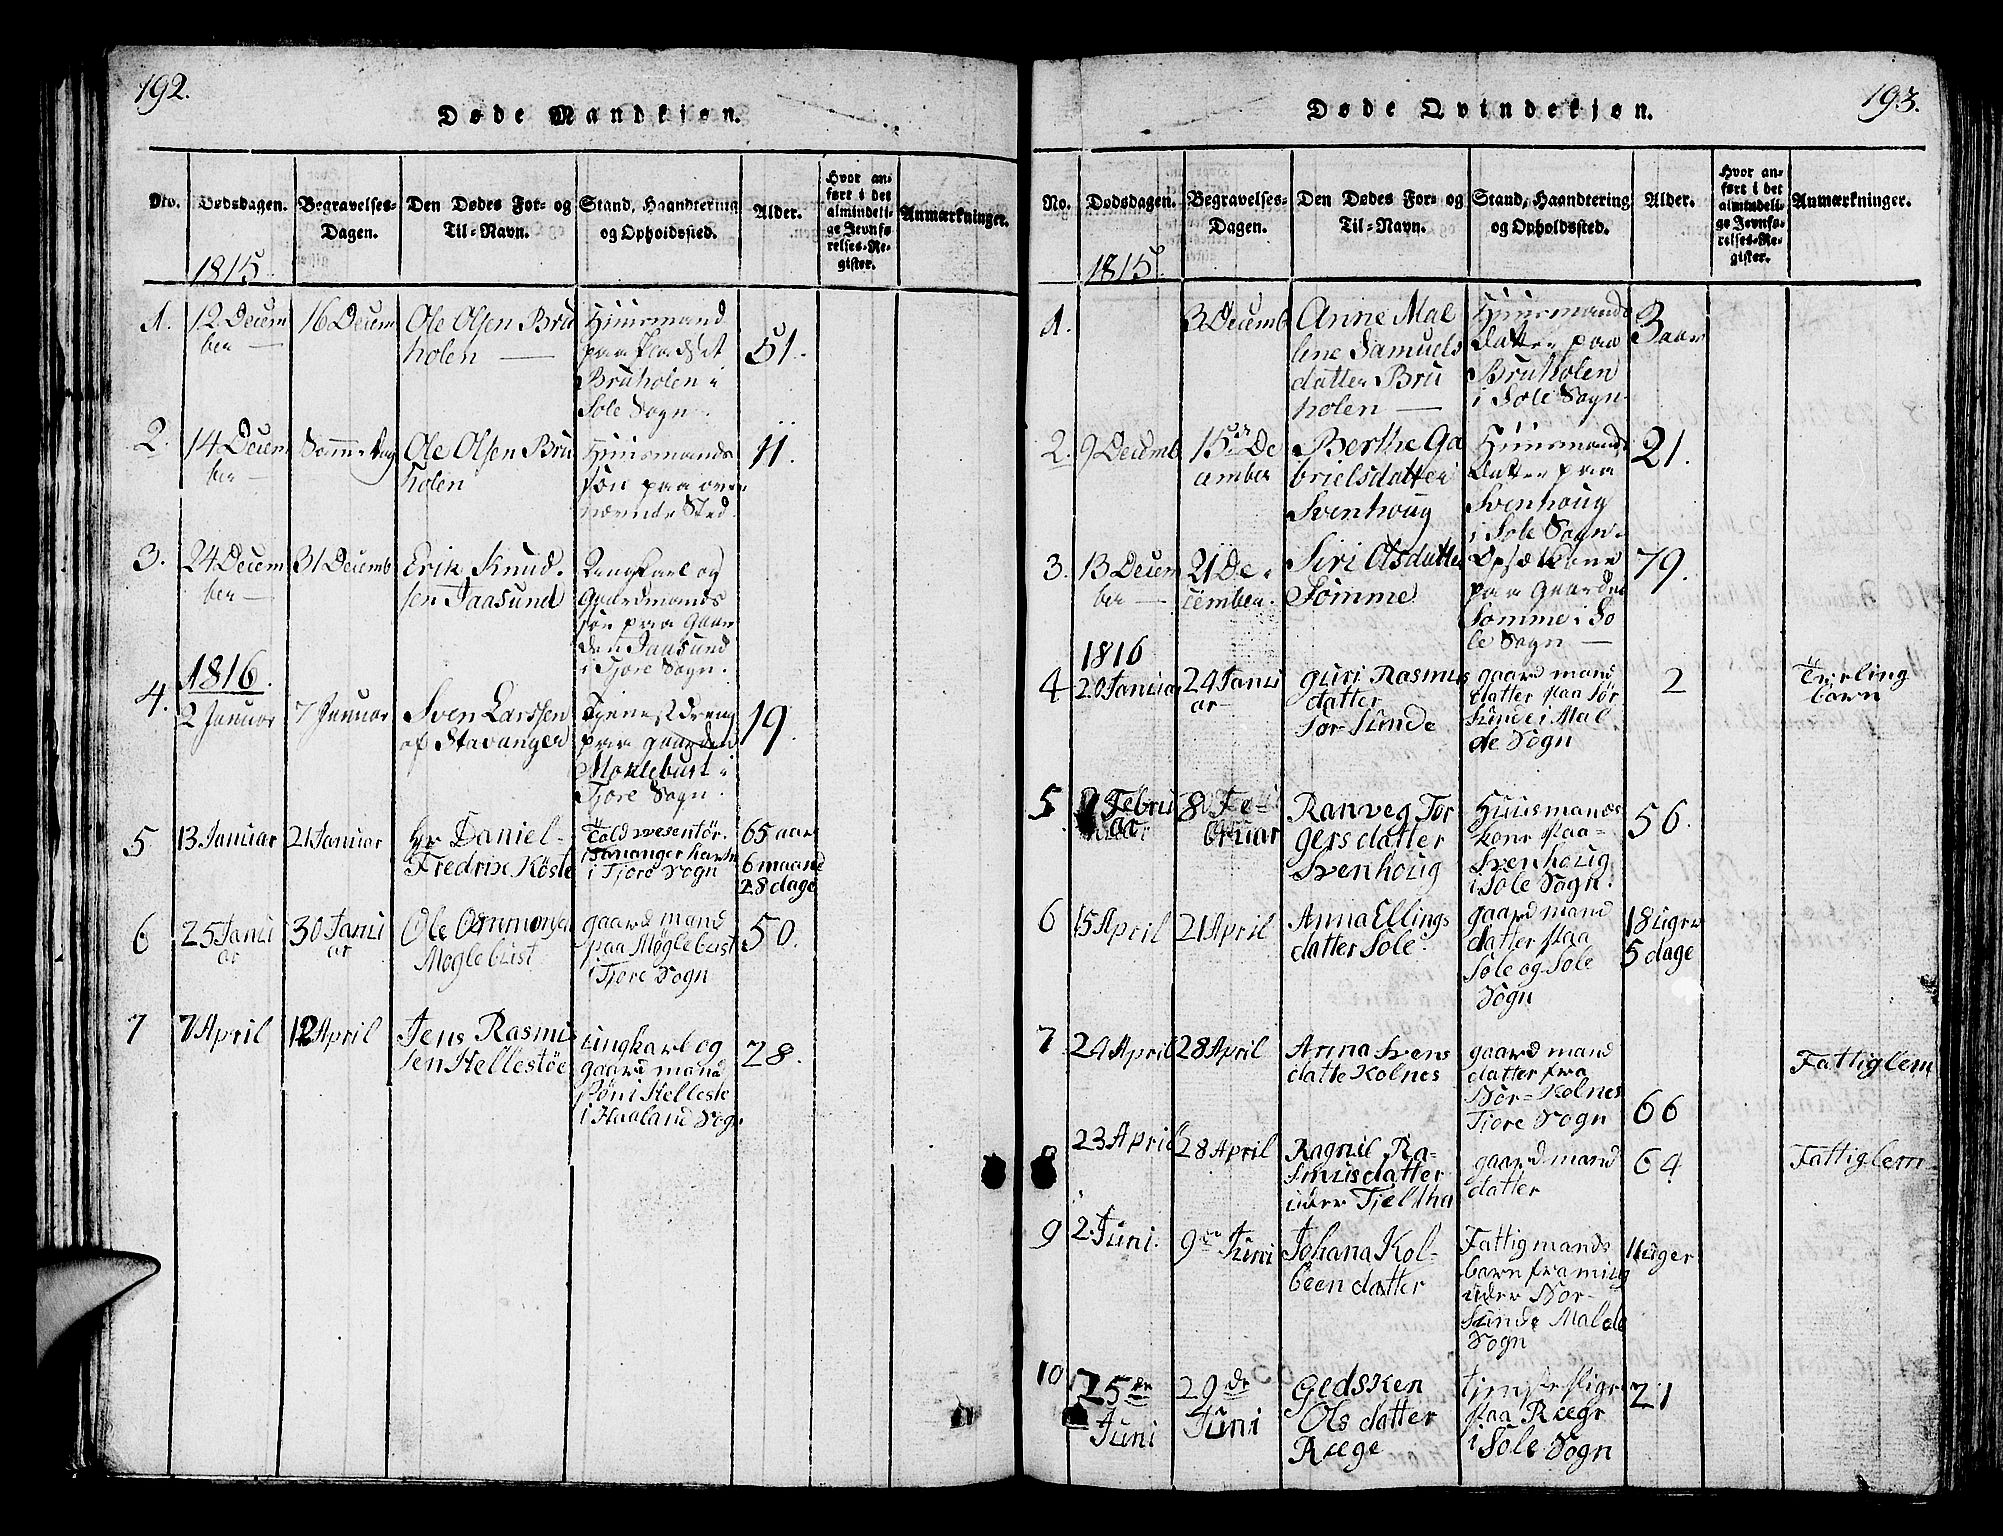 192.
Døde Mandkjøn.
No.
Dødsdagen.
Begravelses-
Dagen.
Den Dødes For- og
Til-Navn.
Stand, Haandtering
og Opholdssted.
Alder.
Hvor an-
ført i det
almindeli-
ge Jevnfø-
relses-Re-
gister.
Anmærkninger.
1815.
1.
12 Decem
ber
16 Decem
Ole Olsen Bru
holen
Huusmand
paa Pladset
Bruholen i
Sole Sogn.
51.
2.
14 Decem
ber
Samme Dag
Ole Olsen Bru
holen
Huusmands
søn paa oven
nævnde Sted.
11.
3.
24 Decem
ber
31 Decemb
Erik Knud-
sen Jaasund
Ungkarl og
Gaardmands
søn paa Gaar
den Jaasund
i Tjore Sogn.
1816.
4.
2 Januar
7 Januar
Sven Larssen
af Stavanger
Tjenestdreng
paa gaarden
Moklebust i
Tjore Sogn.
19.
5
13 Januar
21 Januar
Hr Daniel
Fredrix Köste
Told
i Tjore Sogn
65 aar
6 maand
28 dage
6
25 Janu
ar
30 Janu
ar
Ole
Moglebust
gaard mand
paa Møglebust
i Tjore Sogn
50.
7
7 April
12 April
Jens Rasmus
sen Hellestöe
ungkarl og
gaard mand
sön i Helleste
i Haaland Sogn
28.
193.
Døde Qvindekjøn.
No.
Dødsdagen.
Begravelses-
Dagen.
Den Dødes For- og
Til-Navn.
Stand, Haandtering
og Opholdssted.
Alder.
Hvor an-
ført i det
almindeli-
ge Jevnfø-
relses-Re-
gister.
Anmærkninger.
1815.
1.
3 Decemb
Anne Mal
lene Samuels
datter Bru
holen
Huusmands
Datter paa
Bruholen
i Sole Sogn
3 aar
2.
9 Decemb
15de De
cember
Berthe Ga
brielsdatter
Svenhoug
Huusmands
Datter paa
Svenhoug
i Sole Sogn.
21.
3.
13 Decem
ber
21 De-
cember.
Siri Olsdatter
Sømme
Opsæt Kone
paa Gaarden
Sømme i So
le Sogn
79.
1816
4
20 Januar
24 Janu
ar
Guri Rasmus
datter
Sør-Sunde
gaard mand
datter paa Sør
Sunde i Mal
de Sogn
2
Tvilling
barn
5
Febru
ar
8 Fe-
bruar
Ranveg Tor
gers datter
Svenhoug
Huusmands
kone paa
Svenhoug
i Sole Sogn.
56.
6
15 April
21 April
Anna Ellings
datter Sole.
gaard mand
datter paa
Sole og Sole
Sogn
18 uger
5 dage
7
24 April
28 April
Anna Svens
datte Kolnes
gaard mand
datter fra
Nor-Kolnes
Tjore Sogn
66
Fattiglem
8
23 April
28 April
Ragnil Ra-
smusdatter
under Tjeltha
gaard mand
datter
64
Fattiglem
9
2 Juni.
9de Juni
Johana Kol-
beendatter
Fattigmands
barn fra
under Nor-
Sunde Malde
Sogn
11 uger
10
25de
Juni
29de
Juni
Gedsken
Ols datter
Ræge
tjeneste pige
paa Ræge
i Sole Sogn
21